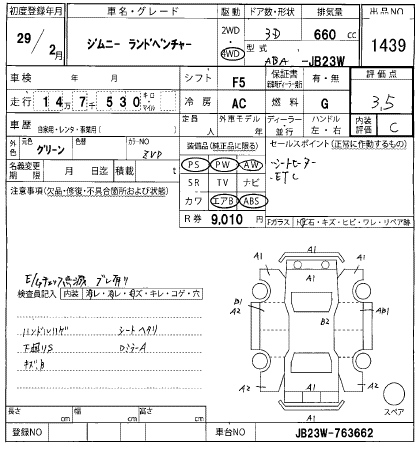 初度登録年月 車名・グレード 駆動 ドア数・形状 排気量 出品NO
29年 2月 ジムニー ランドベンチャー 2WD・4WD 3D 660 cc 1439
型式 ABA -JB23W
車検 年 月 シフト F5 保証書 有・無 評価点
走行 14万7千530 キロ・マイル 冷房 AC 燃料 G 3.5
車歴 自家用・レンタ・事業用( ) 定員 人 外車モデル 年 ディーラー・並行 ハンドル 左・右 内装評価 C
外色 元色 グリーン 色替 カラーNO ZVD
装備品(純正品に限る) セールスポイント(正常に作動するもの)
名義変更期限 月 日迄 積載 t
PS PW AW シートヒーター
SR TV ナビ ETC
カワ エアB ABS
注意事項(欠品・修復・不具合箇所および状態)
R券 9,010 円 Fガラス ト石・キズ・ヒビ・ワレ・リペア跡
検査員記入 内装 キレ・コゲ・穴
ハンドルハゲ シートヘタリ
下廻りS DミラーA
キズB
A1
A1 A1
B1
A2
B2
AB1
A2
A1
A2
A2
A1
スペア
長さ cm 幅 cm 高さ cm
登録NO 車台NO JB23W-763662